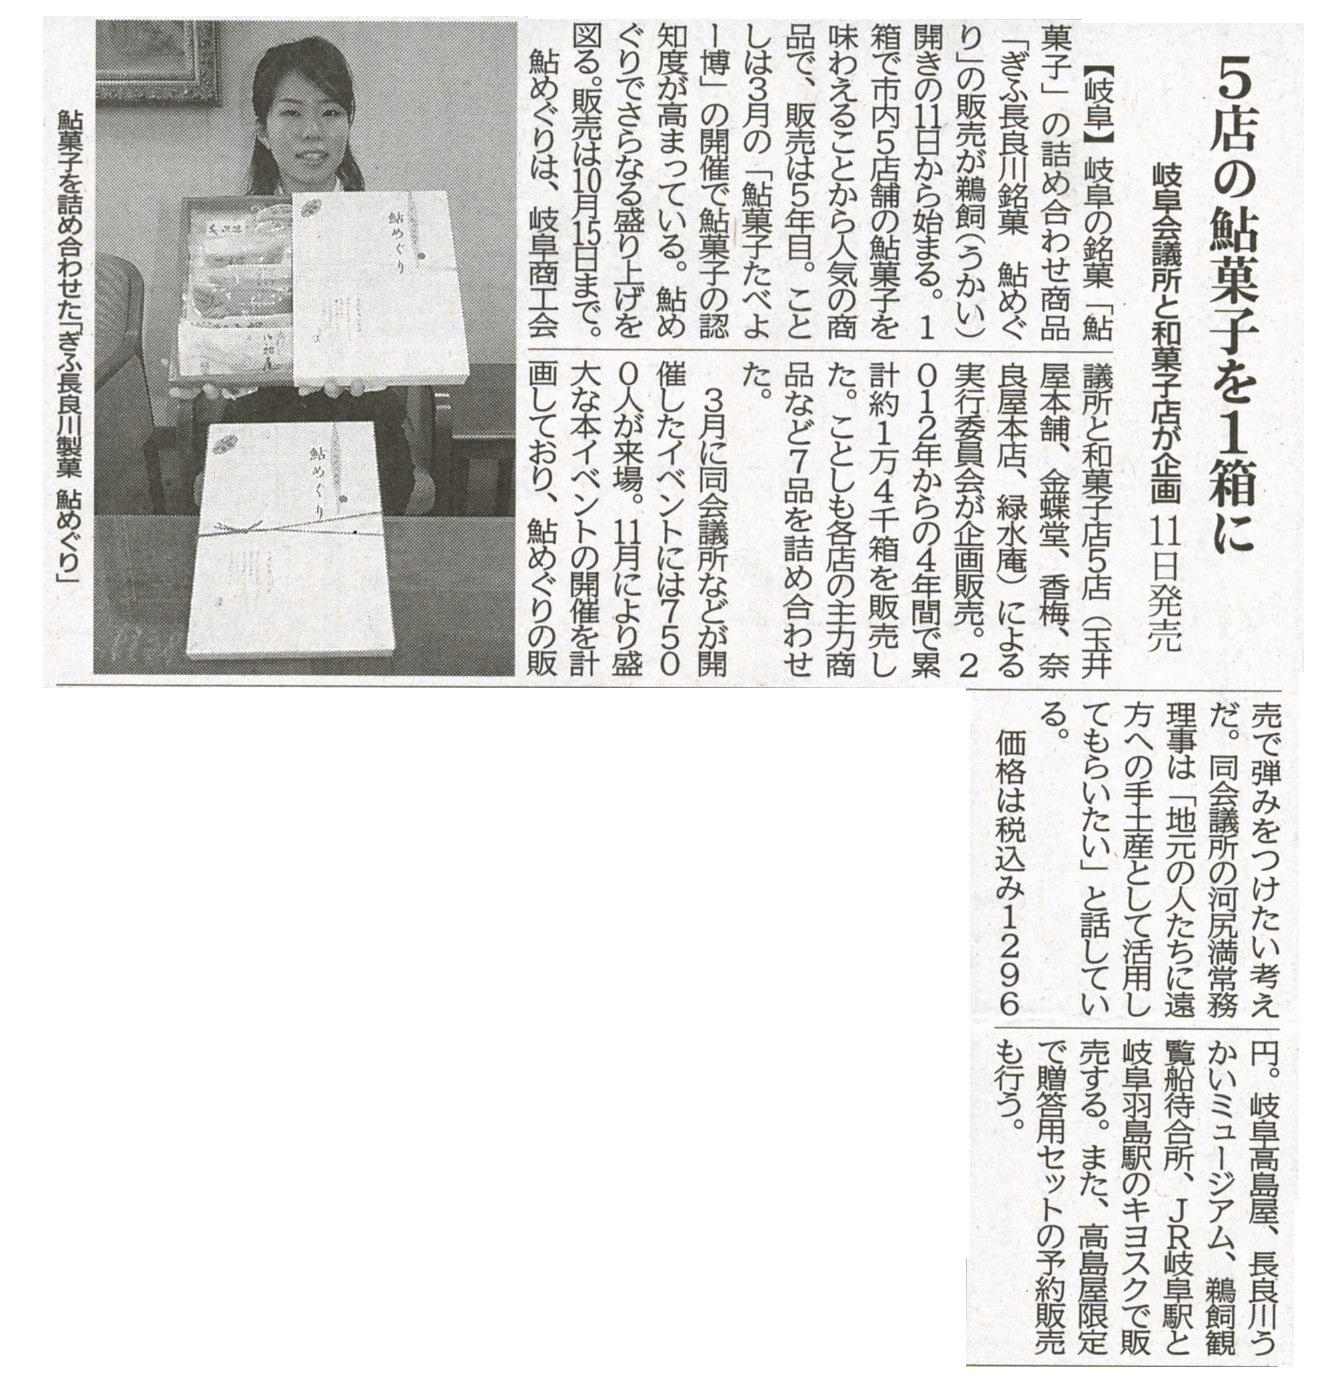 5店の鮎菓子を1箱に
岐阜会議所と和菓子店が企画 11日発売
【岐阜】岐阜の銘菓「鮎
菓子」の詰め合わせ商品
「ぎふ長良川銘菓 鮎めぐ
り」の販売が鵜飼(うかい)
開きの11日から始まる。1
箱で市内5店舗の鮎菓子を
味わえることから人気の商
品で、販売は5年目。こと
しは3月の「鮎菓子たべよ
ー博」の開催で鮎菓子の認
知度が高まっている。鮎め
ぐりでさらなる盛り上げを
図る。販売は10月15日まで。
鮎めぐりは、岐阜商工会
議所と和菓子店5店(玉井
屋本舗、金蝶堂、香梅、奈
良屋本店、緑水庵)による
実行委員会が企画販売。2
012年からの4年間で累
計約1万4千箱を販売し
た。ことしも各店の主力商
品など7品を詰め合わせ
た。
3月に同会議所などが開
催したイベントには750
0人が来場。11月により盛
大な本イベントの開催を計
画しており、鮎めぐりの販
売で弾みをつけたい考え
だ。同会議所の河尻満常務
理事は「地元の人たちに遠
方への手土産として活用し
てもらいたい」と話してい
る。
価格は税込み1296
円。岐阜高島屋、長良川う
かいミュージアム、鵜飼観
覧船待合所、JR岐阜駅と
岐阜羽島駅のキヨスクで販
売する。また、高島屋限定
で贈答用セットの予約販売
も行う。
鮎菓子を詰め合わせた「ぎふ長良川製菓 鮎めぐり」
鮎めぐり
鮎めぐり